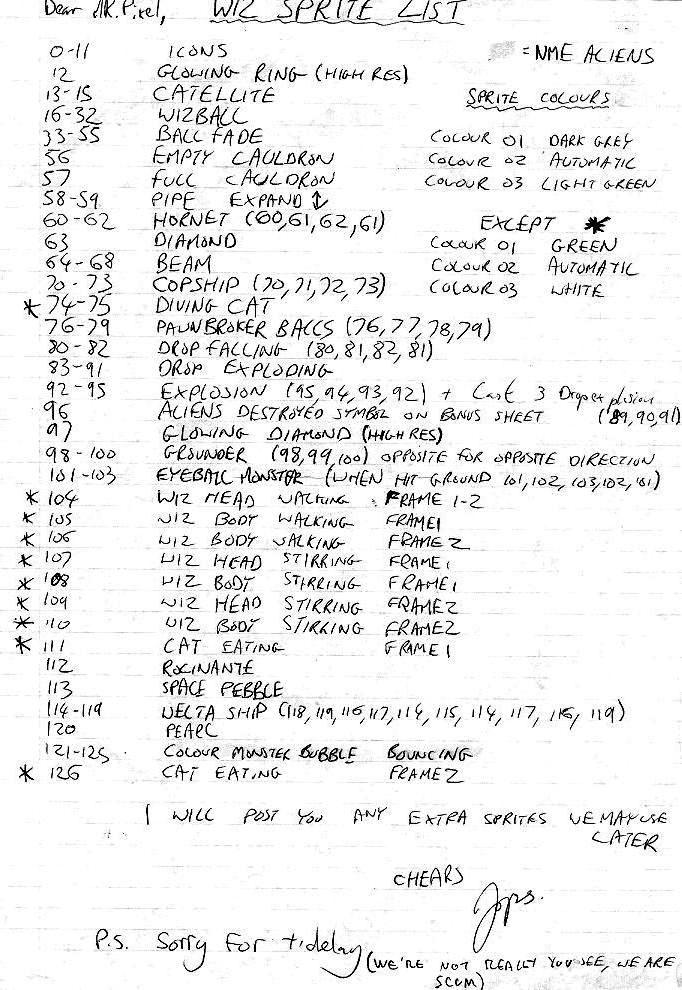 Dear MR. Pixel, WIZ SPRITE LIST
= NME ALIENS
0-11 ICONS
12 GLOWING RING (HIGH RES)
13-15 CATELLITE
16-32 WIZBALL
33-55 BALL FADE
56 EMPTY CAULDRON
57 FULL CAULDRON
58-59 PIPE EXPAND ↕
60-62 HORNET (60,61,62,61)
63 DIAMOND
64-68 BEAM
70-73 COPSHIP (70,71,72,73)
* 74-75 DIVING CAT
76-79 PAWNBROKER BALLS (76,77,78,79)
80-82 DROP FALLING (80,81,82,81)
83-91 DROP EXPLODING
92-95 EXPLOSION (95,94,93,92) + Last 3 Drop explosion
(89,90,91)
96 ALIENS DESTROYED SYMBOL ON BONUS SHEET
97 GLOWING DIAMOND (HIGH RES)
98-100 GROUNDER (98,99,100) OPPOSITE FOR OPPOSITE DIRECTION
101-103 EYEBALL MONSTER (WHEN HIT GROUND 101,102,103,102,101)
* 104 WIZ HEAD WALKING FRAME 1-2
* 105 WIZ BODY WALKING FRAME1
* 106 WIZ BODY WALKING FRAME2
* 107 WIZ HEAD STIRRING FRAME1
* 108 WIZ BODY STIRRING FRAME1
* 109 WIZ HEAD STIRRING FRAME2
* 110 WIZ BODY STIRRING FRAME2
* 111 CAT EATING FRAME1
112 ROCINANTE
113 SPACE PEBBLE
114-119 DELTA SHIP (118,119,116,117,114,115,114,117,116,119)
120 PEARL
121-125 COLOUR MONSTER BUBBLE BOUNCING
* 126 CAT EATING FRAME2
SPRITE COLOURS
COLOUR 01 DARK GREY
COLOUR 02 AUTOMATIC
COLOUR 03 LIGHT GREEN
EXCEPT *
COLOUR 01 GREEN
COLOUR 02 AUTOMATIC
COLOUR 03 WHITE
I WILL POST YOU ANY EXTRA SPRITES WE MAY USE
LATER
CHEARS
Jops.
P.S. Sorry For t' delay (WE'RE NOT REALLY YOU SEE, WE ARE
SCUM)